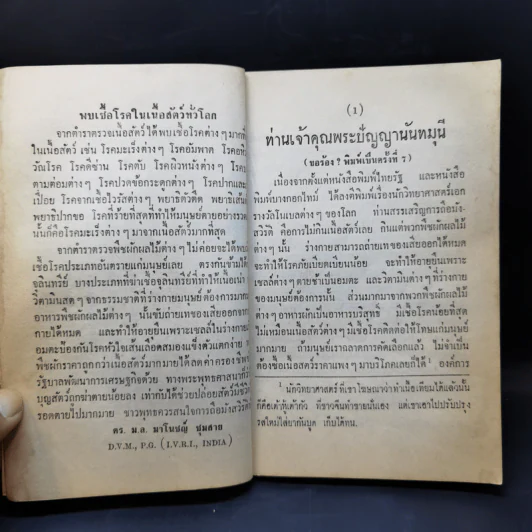 พบเชื้อโรคในเนื้อสัตว์ทั่วโลก
จากตำราตรวจเนื้อสัตว์ ได้พบเชื้อโรคต่าง ๆ มาก
ในเนื้อสัตว์ เช่น โรคมะเร็งต่าง ๆ โรคอัมพาต โรค
วัณโรค โรคดีซ่าน โรคตับ โรคผิวหนังต่าง ๆ
ตามต่อมต่าง ๆ โรคปวดข้อกระดูกต่าง ๆ โรคปากและ
เปื่อย โรคจากเชื้อไวรัสต่าง ๆ พยาธิตัวตืด พยาธิเส้น
พยาธิปากขอ โรคที่ร้ายที่สุดที่ทำให้มนุษย์ตายอย่าง
นั้นก็คือโรคมะเร็งต่าง ๆ มาจากเนื้อสัตว์มากที่สุด
จากตำราตรวจพืชผักผลไม้ต่าง ๆ ไม่ค่อยจะได้พบ
เชื้อโรคประเภทอันตรายแก่มนุษย์เลย ตรงกันข้ามได้
จุลินทรีย์ บางประเภทที่ฆ่าเชื้อจุลินทรีย์ที่ทำให้เนื้อเน่า
วิตามินสด ๆ จากธรรมชาติที่ร่างกายมนุษย์ต้องการมาก
อาหารพืชผักผลไม้ต่าง ๆ นั้นขับถ่ายเทของเสียออกจาก
กายได้หมด และทำให้อายุยืนเพราะเซลล์ในร่างกาย
อมตะป้องกันโรคหัวใจเส้นเลือดสมองแข็งตัวแตกง่าย
พืชผักราคาถูกกว่าเนื้อสัตว์มากมายได้ลดค่าครองชีพ
รัฐบาลพัฒนาการเศรษฐกิจด้วย ทางพระพุทธศาสนา
บุญสัตว์ถูกฆ่าตายน้อยลง เท่ากับได้ช่วยปล่อยสัตว์มีชีวิต
รอดตายไปมากมาย ชาวพุทธควรสนใจการถือมังสวิรัติ
ดร. ม.ล. มาโนชญ์ ชุมสาย
D.V.M., P.G. (I.V.R.I., INDIA)
(1)
ท่านเจ้าคุณพระปัญญานันทมุนี
(ขอร้อง ? พิมพ์เป็นครั้งที่ 7)
เนื่องจากตั้งแต่หนังสือพิมพ์ไทยรัฐ และหนังสือ
พิมพ์บางกอกไทม์ ได้ลงตีพิมพ์เรื่องนักวิทยาศาสตร์เอก
รางวัลโนเบลต่าง ๆ ของโลก ท่านสรรเสริญการถือมัง-
สวิรัติ คือการไม่กินเนื้อสัตว์เลย กินแต่พวกพืชผักผลไม้
ต่าง ๆ นั้น ร่างกายสามารถถ่ายเทของเสียออกได้หมด
จะทำให้โรคภัยเบียดเบียนน้อย จะทำให้อายุยืนเพราะ
เซลล์ต่าง ๆ ตายช้าเป็นอมตะ และวิตามินต่าง ๆ ที่ร่างกาย
ของมนุษย์ต้องการนั้น ส่วนมากมาจากพวกพืชผักผลไม้
ต่าง ๆ อาหารผักเป็นอาหารบริสุทธิ์ มีเชื้อโรคน้อยที่สุด
ไม่เหมือนเนื้อสัตว์ต่าง ๆ มีเชื้อโรคติดต่อให้โทษแก่มนุษย์
มากมาย ถ้ามนุษย์เราฉลาดการคัดเลือกแล้ว ไม่จำเป็น
ต้องซื้อเนื้อสัตว์ราคาแพง ๆ มาบริโภคเลยก็ได้ ¹ องค์การ
¹ นักวิทยาศาสตร์ที่เขาโฆษณาว่าทำเนื้อเทียมได้แล้วนั้น
ก็คือเต้าหู้เต้ากัว ที่ชาวจีนทำขายนั่นเอง แต่เขาเอาไปปรับปรุง
รสใหม่ใส่ยากันบูด เก็บได้ทน.